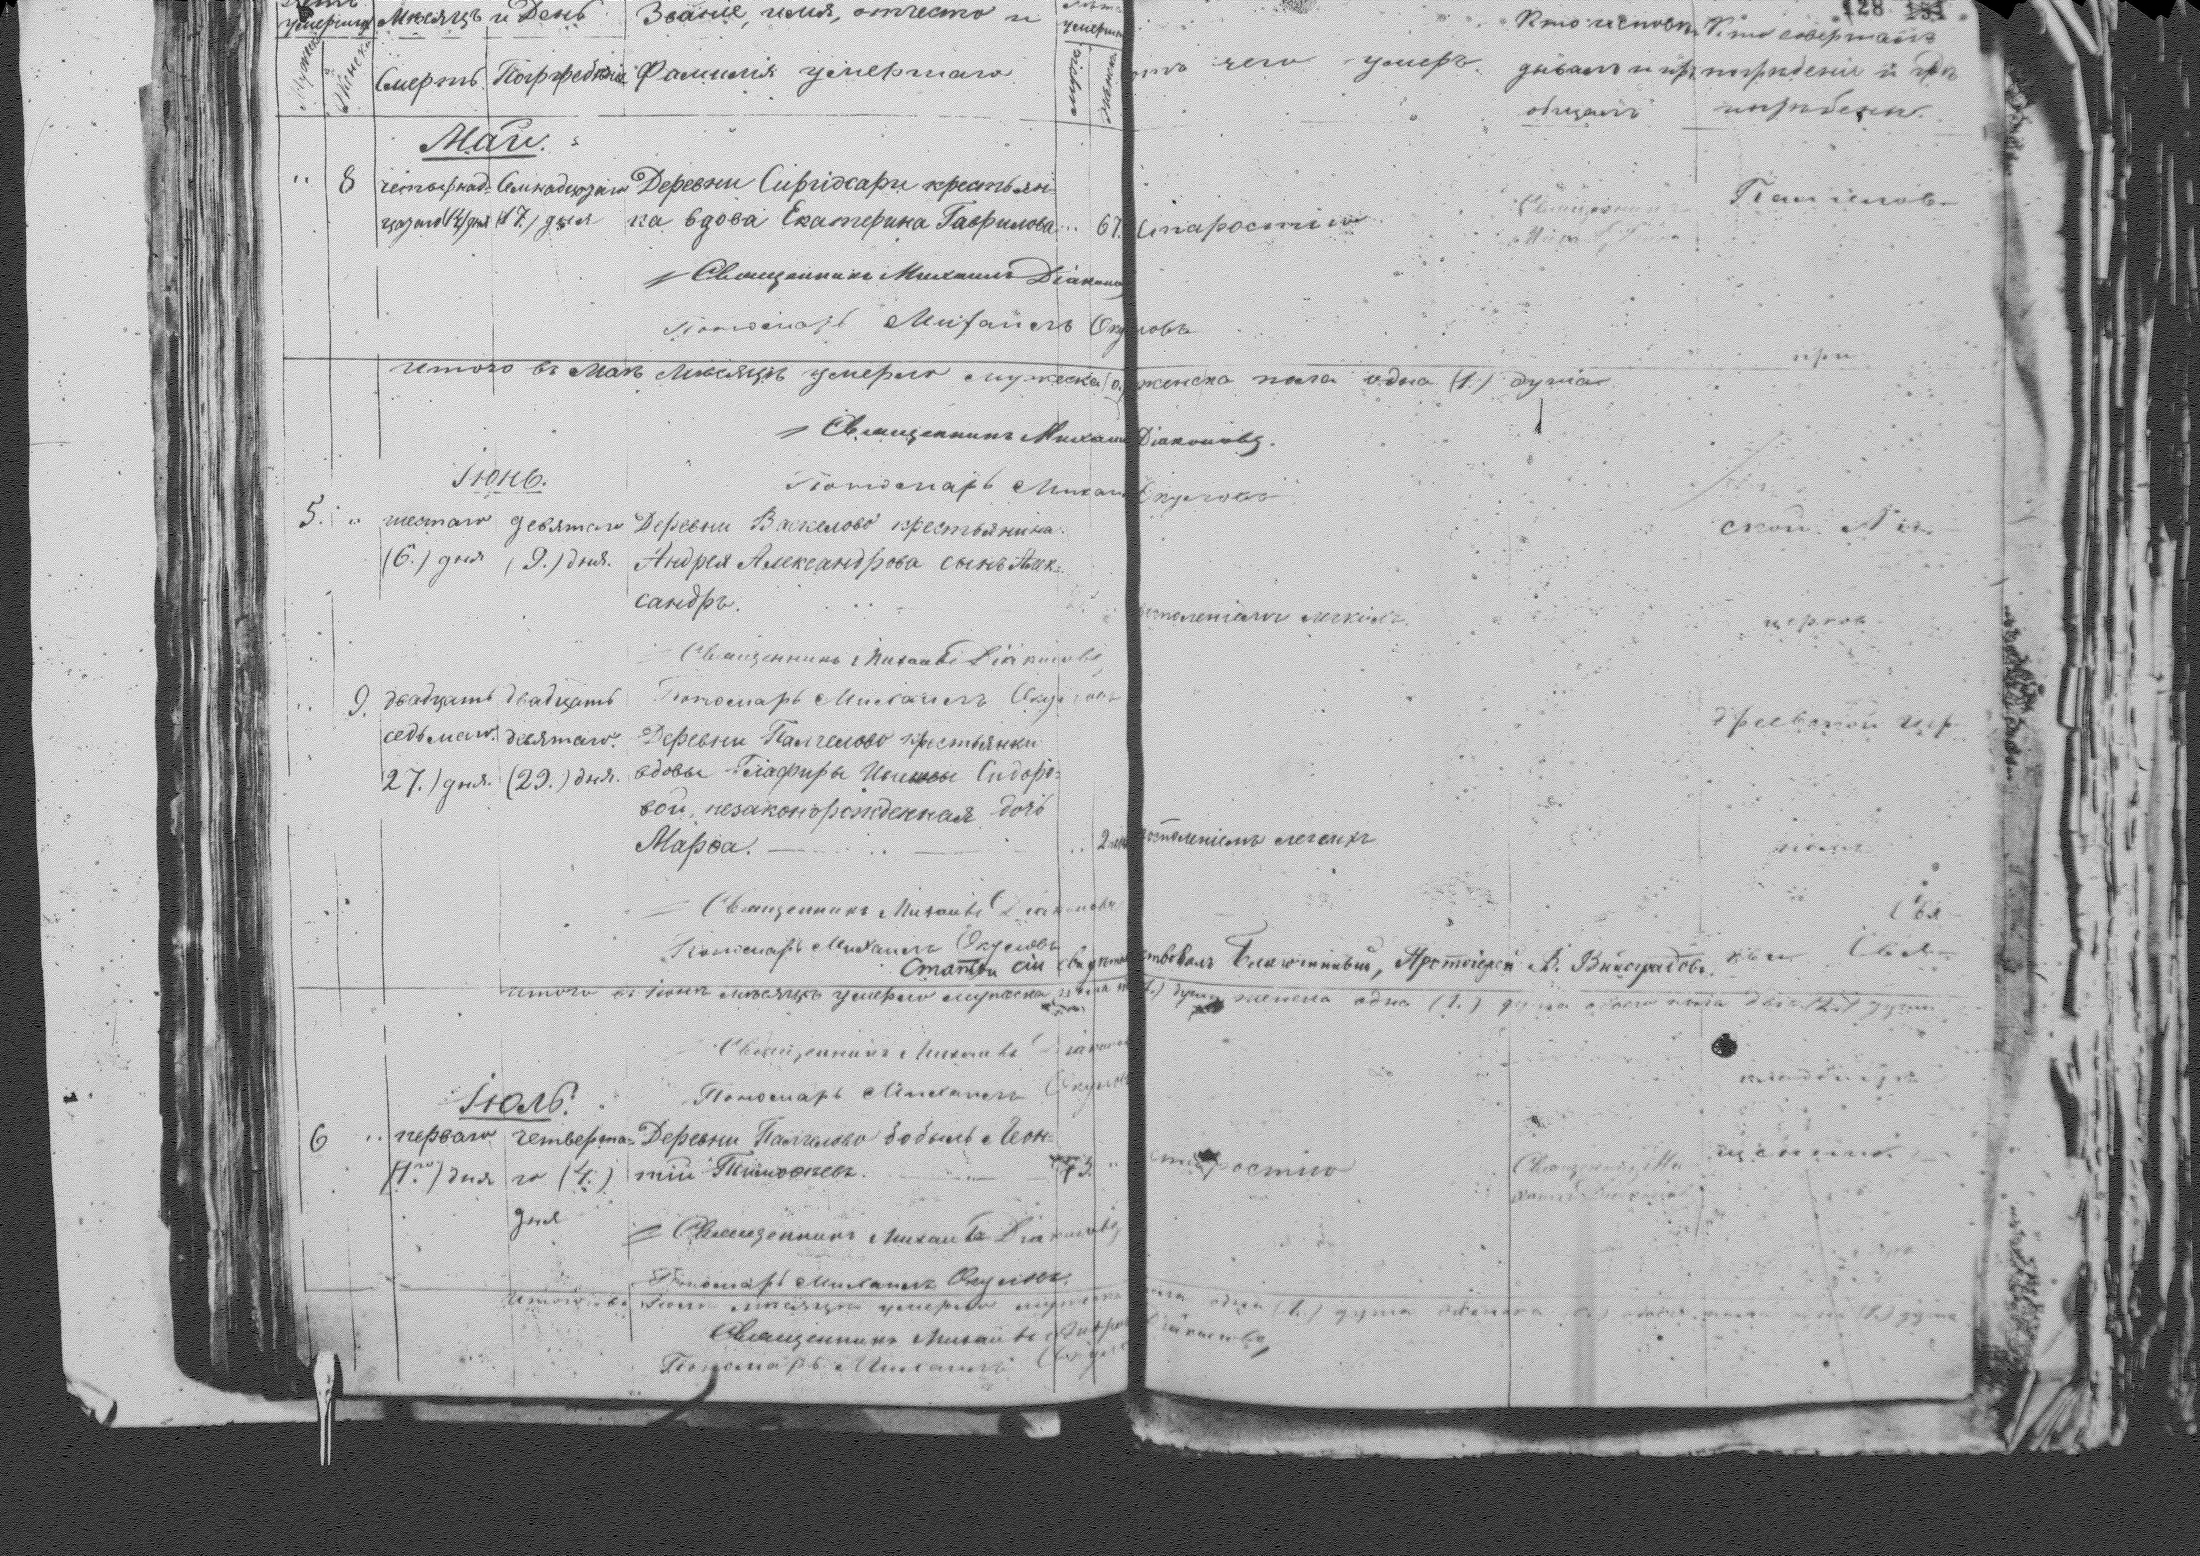 умершихъ Мѣсяцъ и День Званіе, имя, отчество и умершаго Кто исповѣ- Кто совершалъ 128 131
Мужеска Женска Смерть. Погребенія Фамилія умершаго мужеск. женска отъ чего умеръ. дывалъ и прі- погребеніе и гдѣ
общалъ погребены.
Май.
" 8 четырнад- Семнадцатаго Деревни Сиргіохари крестьян-
цатаго (14) дня (17.) дня ка вдова Екатерина Гаврилова ... 67. старостію Священникъ Палгелов-
Священникъ Михаилъ Діаконовъ
Пономарь Михаилъ Окуловъ
при
Итого въ Маѣ Мѣсяцѣ умерло мужеска (0) женска пола одна (1.) душа.
Священникъ Михаилъ Діаконовъ.
Іюнь.
Пономарь Михаилъ Окуловъ
5. " шестаго девятаго Деревни Вакелово крестьянина ской
(6.) дня (9.) дня. Андрея Александрова сынъ Алек-
сандръ. воспаленіемъ легкихъ. церков
Священникъ Михаилъ Діаконовъ
Пономарь Михаилъ Окуловъ
" 9. двадцать двадцать
седьмаго девятаго. Деревни Палгелово крестьянки
27.) дня. (29.) дня. вдовы Глафиры Сидоро-
вой, незаконорожденная дочь
Марѳа. 2 воспаленіемъ легкихъ
Священникъ Михаилъ Діаконовъ
Пономарь Михаилъ Окуловъ
Статьи сіи свидѣтельствовалъ Благочинный, Протоіерей В. Виноградовъ.
Итого въ Іюнѣ мѣсяцѣ умерло мужеска пола (1.) душа женска одна (1.) душа обоего пола двѣ (2.) души
Священникъ Михаилъ Діаконовъ
Пономарь Михаилъ Окуловъ
кладбищѣ
Іюль.
6 " перваго четверта- Деревни Палгелово бобыль Леон-
(1го) дня го (4.) тій Тимоѳеевъ. 73. " старостію Священникъ Ми-
дня хаилъ Діаконовъ
Священникъ Михаилъ Діаконовъ
Пономарь Михаилъ Окуловъ.
Итого въ Іюлѣ мѣсяцѣ умерло мужеска пола одна (1.) душа женска (0) обоего пола одна (1.) душа
Священникъ Михаилъ Діаконовъ
Пономарь Михаилъ Окуловъ